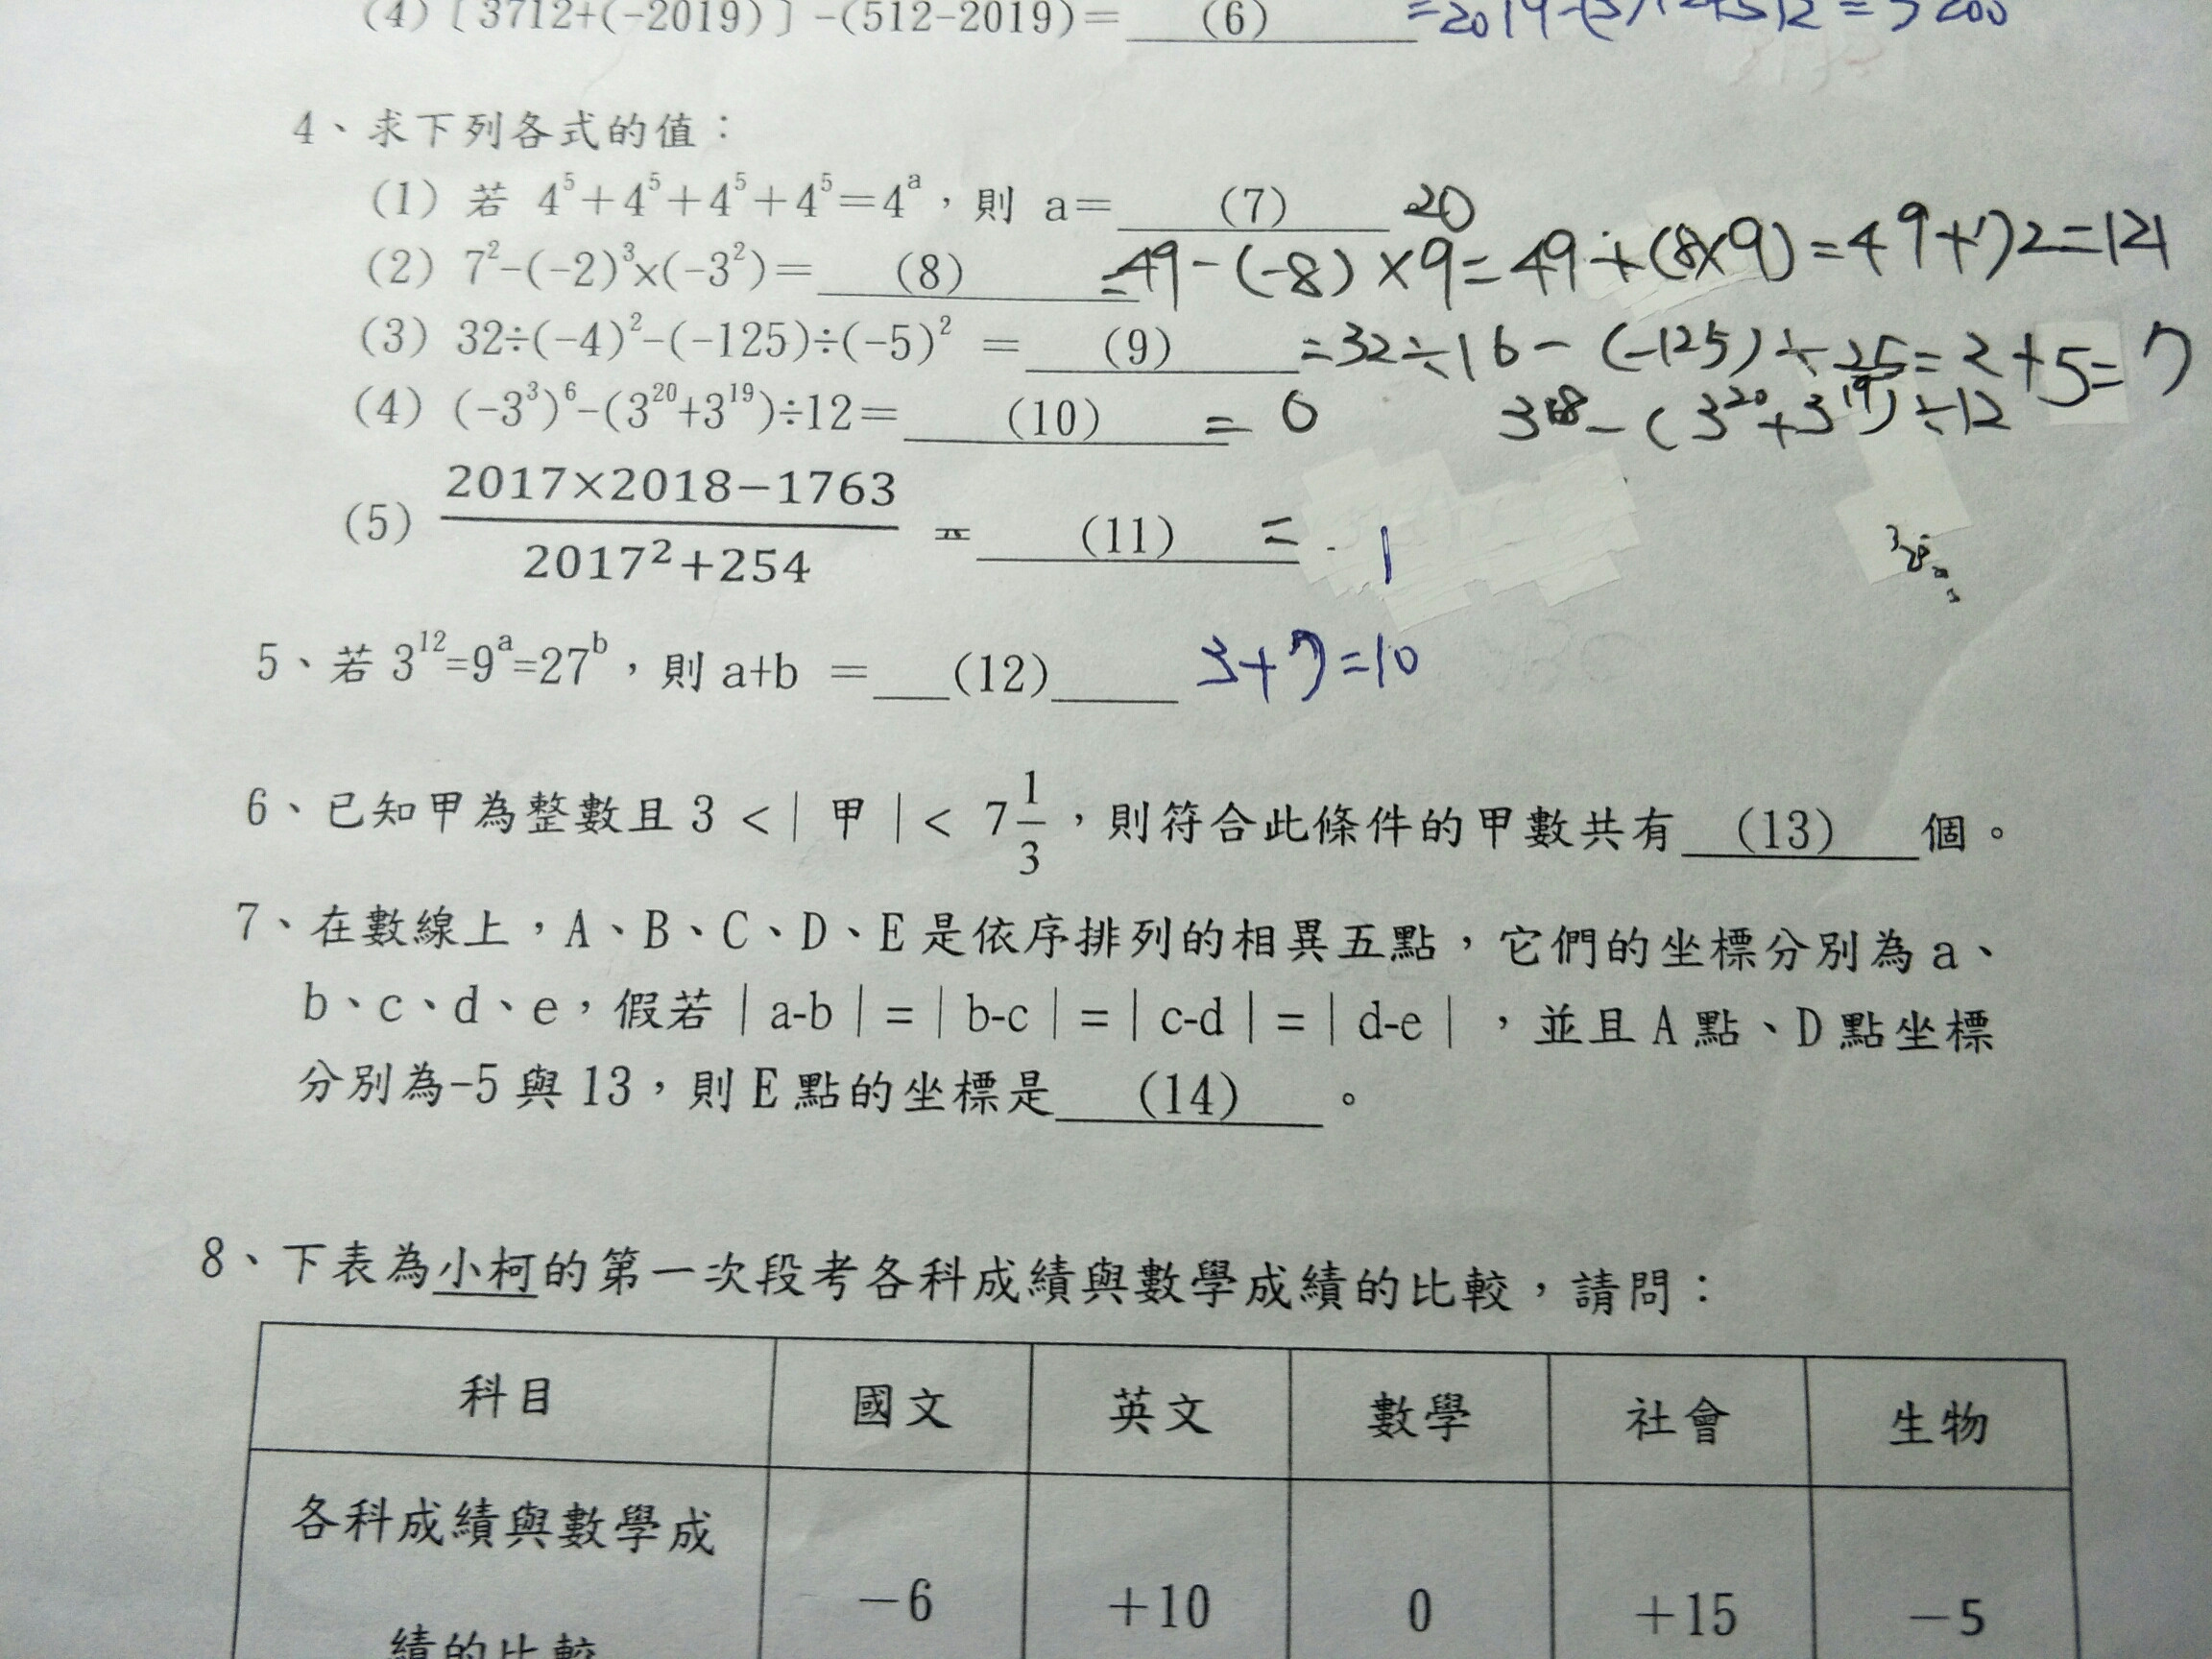 (4)〔3712+(-2019)〕-(512-2019)= (6) =2019-
4、求下列各式的值：
(1) 若 4⁵+4⁵+4⁵+4⁵=4ᵃ，則 a= (7) 20
(2) 7²-(-2)³×(-3²)= (8) =49-(-8)×9=49+(8×9)=49+72=121
(3) 32÷(-4)²-(-125)÷(-5)² = (9) =32÷16-(-125)÷25=2+5=7
(4) (-3³)⁶-(3²⁰+3¹⁹)÷12= (10) = 0 3¹⁸-(3²⁰+3¹⁹)÷12
(5) 2017×2018-1763
2017²+254
= (11) = 1
5、若 3¹²=9ᵃ=27ᵇ，則 a+b = (12) 3+7=10
6、已知甲為整數且 3 <| 甲 |< 7 1/3，則符合此條件的甲數共有 (13) 個。
7、在數線上，A、B、C、D、E 是依序排列的相異五點，它們的坐標分別為 a、
b、c、d、e，假若｜a-b｜=｜b-c｜=｜c-d｜=｜d-e｜，並且 A 點、D 點坐標
分別為-5 與 13，則 E 點的坐標是 (14) 。
8、下表為小柯的第一次段考各科成績與數學成績的比較，請問：
科目 國文 英文 數學 社會 生物
各科成績與數學成
績的比較 -6 +10 0 +15 -5